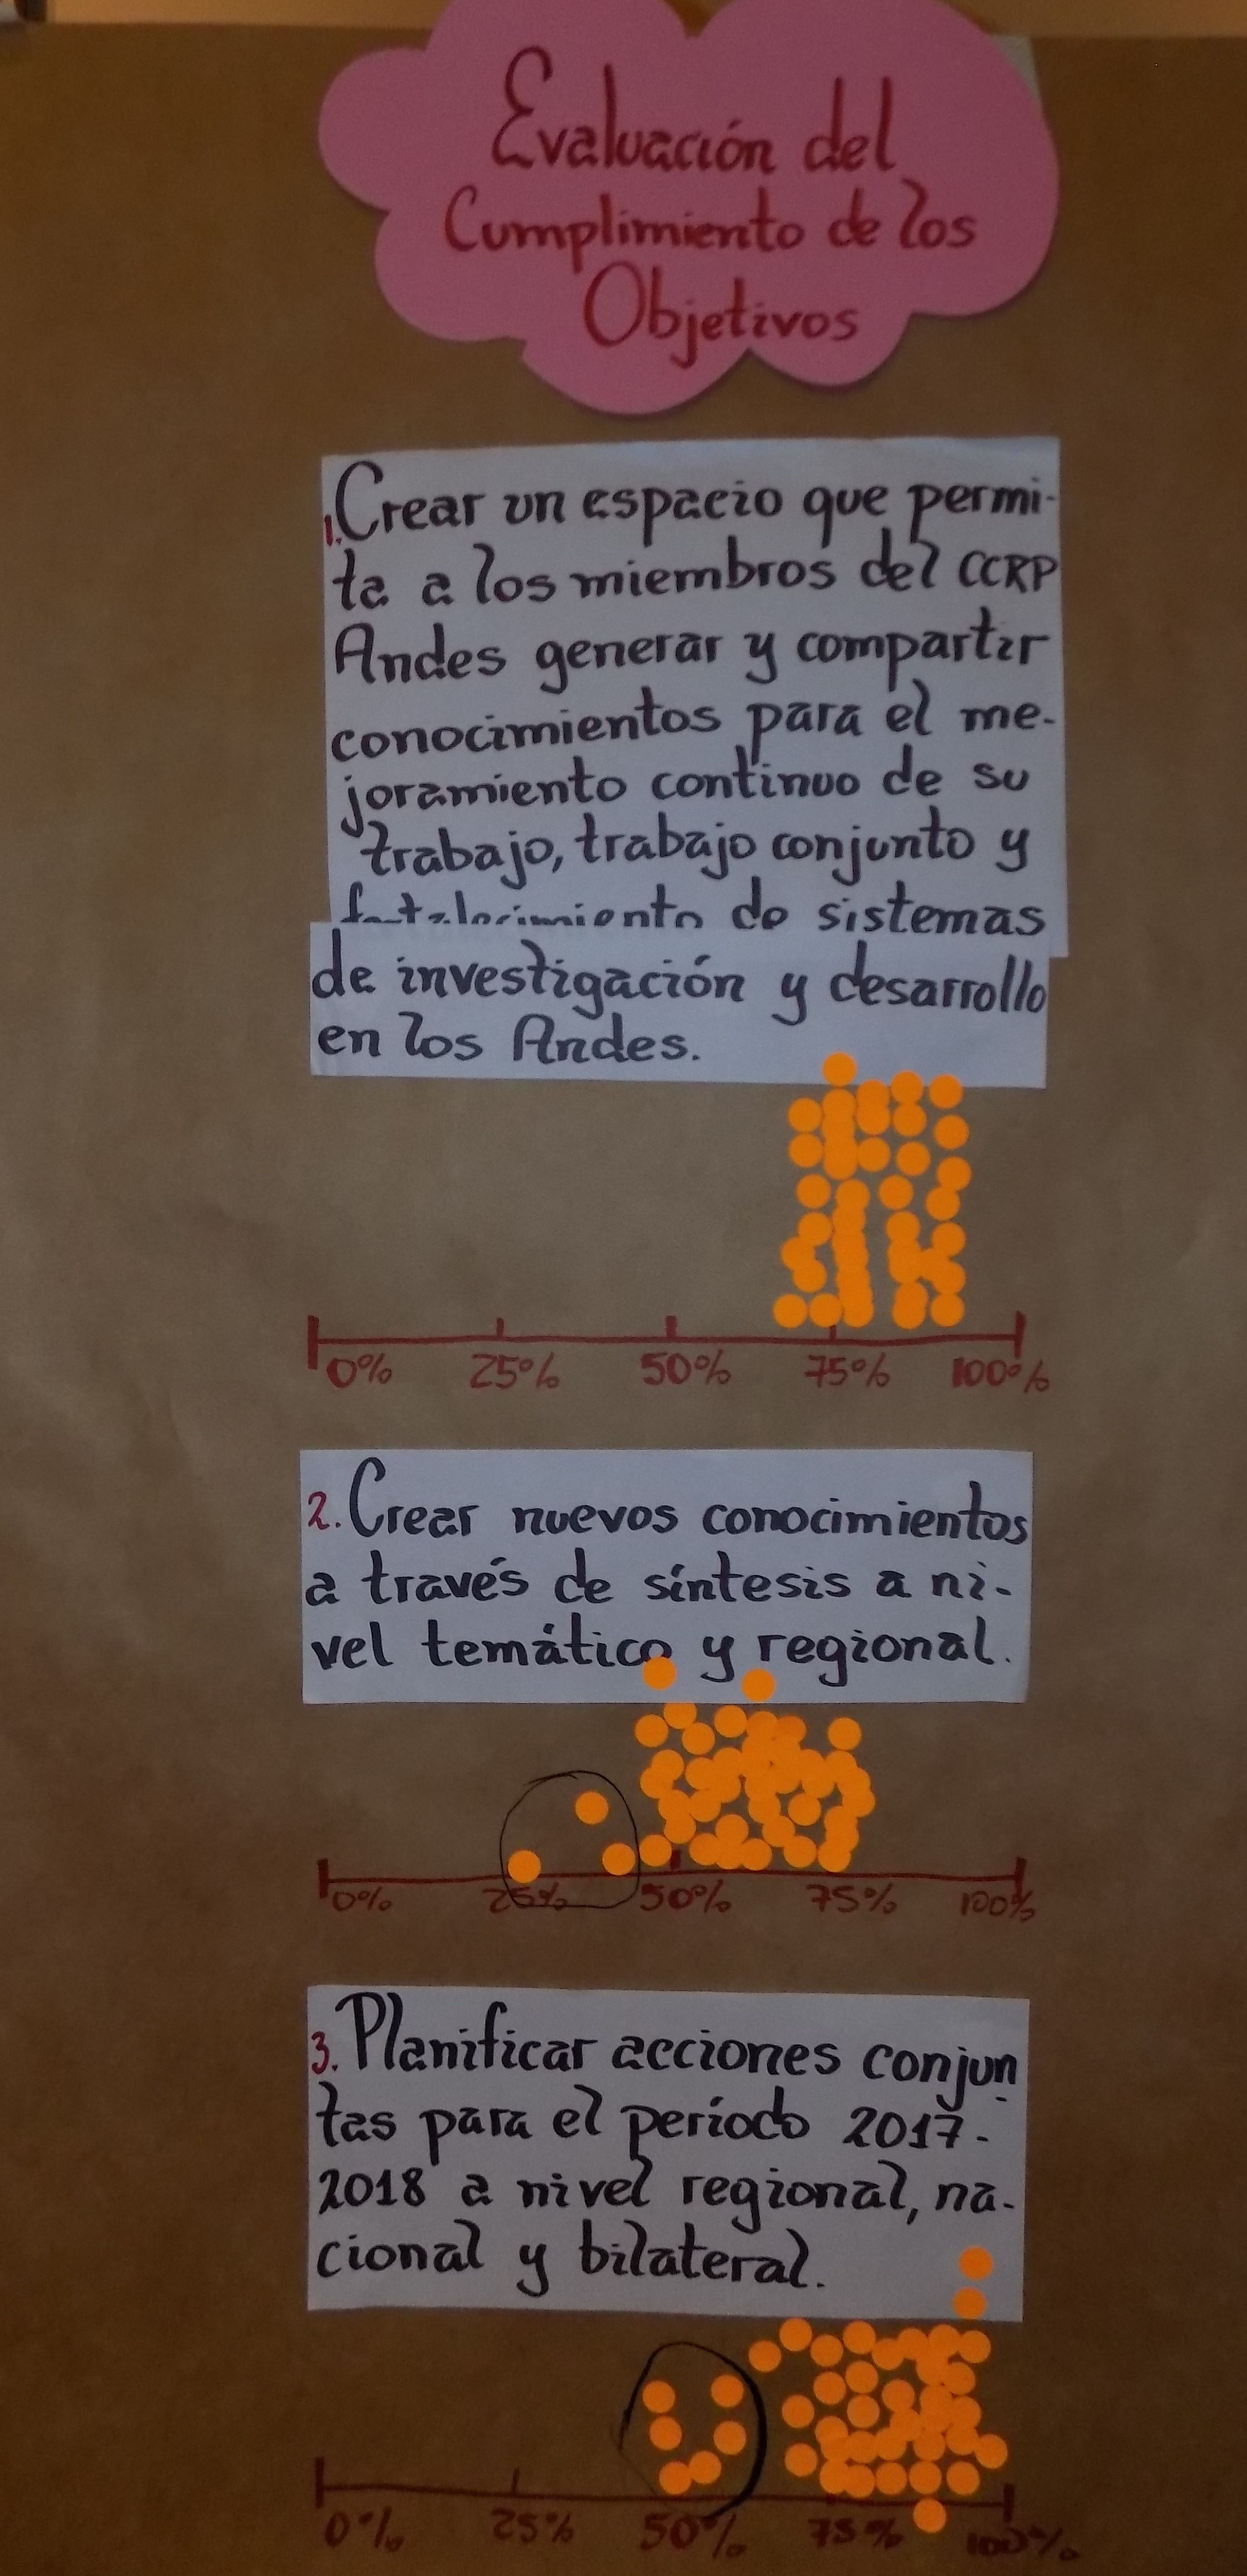 Evaluación del
Cumplimiento de los
Objetivos
1. Crear un espacio que permi-
ta a los miembros del CCRP
Andes generar y compartir
conocimientos para el me-
joramiento continuo de su
trabajo, trabajo conjunto y
fortalecimiento de sistemas
de investigación y desarrollo
en los Andes.
0% 25% 50% 75% 100%
2. Crear nuevos conocimientos
a través de síntesis a ni-
vel temático y regional.
0% 25% 50% 75% 100%
3. Planificar acciones conjun
tas para el período 2017-
2018 a nivel regional, na-
cional y bilateral.
0% 25% 50% 75% 100%